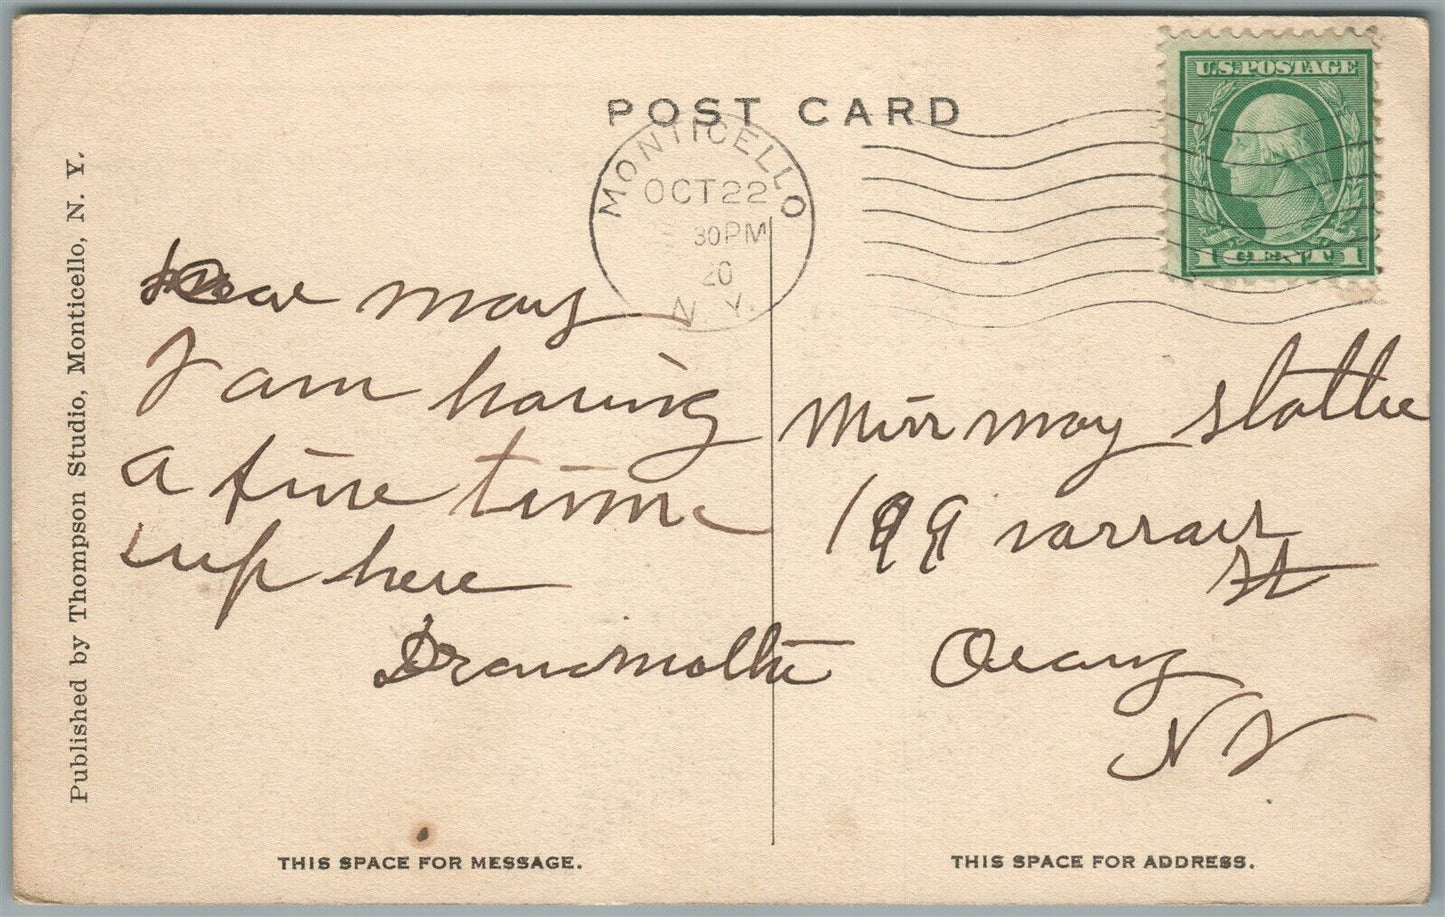 POST CARD
U.S. POSTAGE
1 CENT 1
MONTICELLO
OCT 22
30 PM
20
N. Y.
Published by Thompson Studio, Monticello, N. Y.
Dear May
I am having
a fine time
up here
Grandmother
Miss May
199
St
Orang
N J
THIS SPACE FOR MESSAGE.
THIS SPACE FOR ADDRESS.